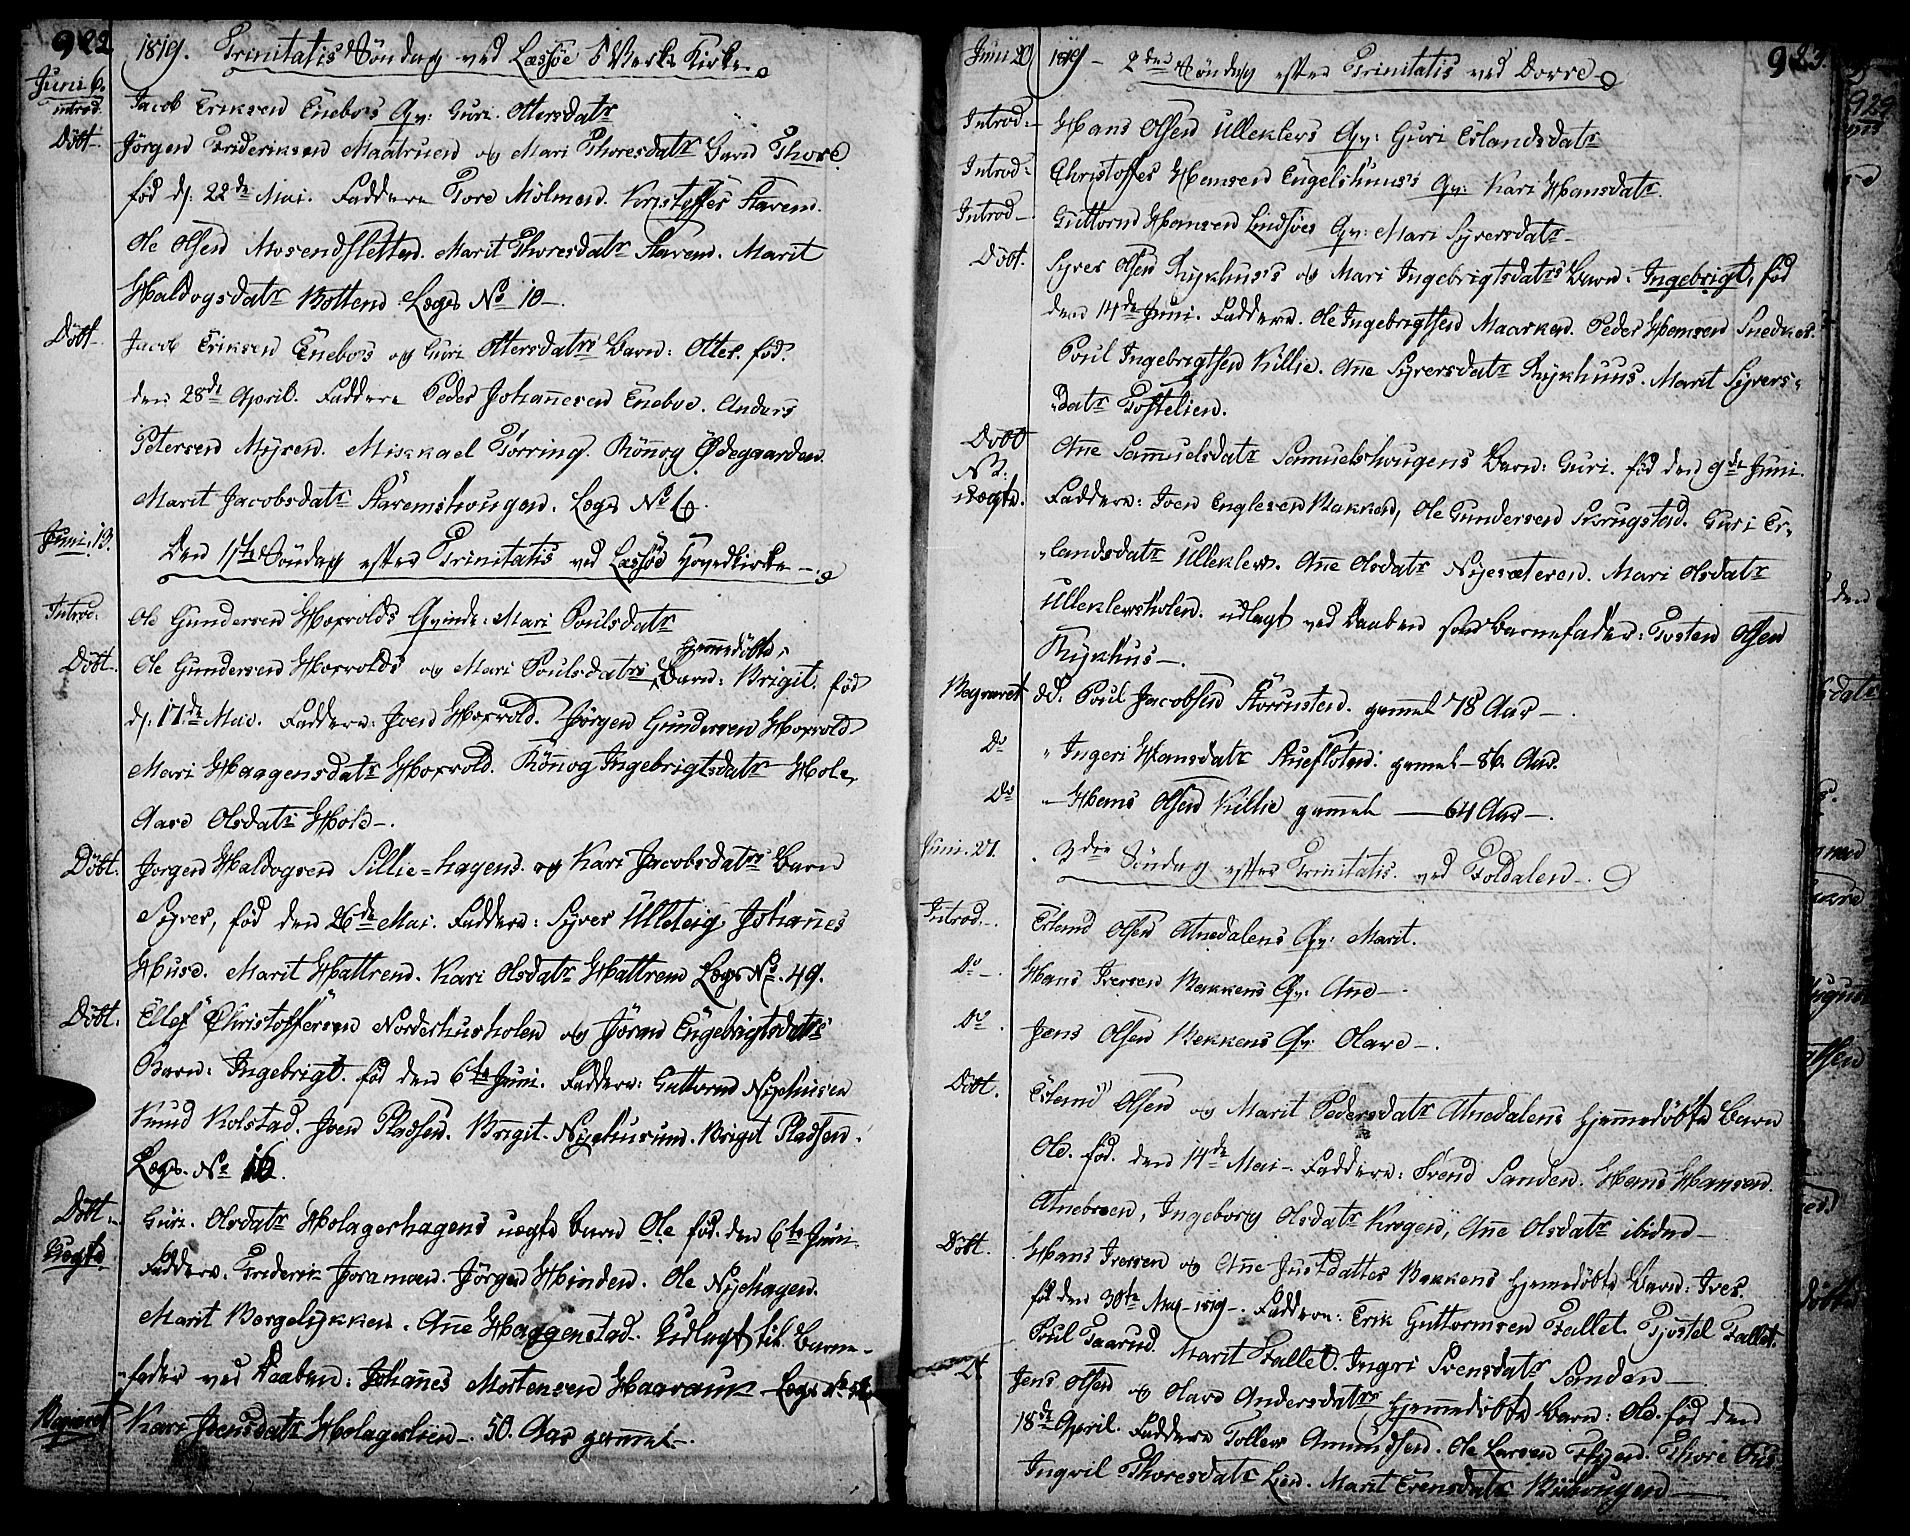 922
1819. Trinitatis Söndag ved Læssöe Verks Kirke
Juni 6.
introd. Jacob Eriksen Enebo's Qv: Guri Ottersdatr
Döbt. Jörgen Frideriksen Maatruen og Mari Thoresdatr Barn Thore
fød d: 22de Mai. Faddere Tore Mölmen. Kristoffer Stavem.
Ole Olsen Mosendsletten. Marit Thoresdatr Stavem. Marit
Haldogsdatr Bottend Lægs No 10.
Döbt. Jacob Eriksen Enebo's og Guri Ottersdatrs Barn: Otter. fød.
den 28de April. Faddere Peder Johañesen Eneboe. Anders
Petersen Myren. Mikkael Törring. Rönnog Ödegaarden.
Marit Jacobsdatr Stavemshougen. Lægs No 6.
Juni 13. Den 1ste Söndag efter Trinitatis ved Læssöe Hovedkirke
Introd. Ole Gundersen Hoxvolds Qvinde: Mari Poulsdatr
Döbt. Ole Gundersen Hoxvolds og Mari Poulsdatrs hjemmedöbte Barn: Brigit. fød
d: 17de Mai. Faddere: Joen Hoxvold. Jörgen Gundersen Hoxvold
Mari Haagensdatr Hoxvold. Rönnog Ingebrigtsdatr Hole,
Aase Olsdatr Hole.
Döbt. Jorgen Haldogsen Lillie-hagens og Kari Jacobsdatrs Barn
Syver, fød den 26de Mai. Faddere: Syver Ulleteig Johañes
Huse. Marit Hattrem. Kari Olsdatr Hattrem Lægs No. 49.
Döbt. Ellef Christoffersen Norderhusholen og Jöran Engebrigtsdatrs
Barn: Ingebrigt. fød den 6te Juni. Faddere: Guttorm Nyehusen
Knud Kolstad. Joen Pladsen. Brigit Nyehusum. Brigit Pladsen.
Lægs. No 16.
Döbt. Guri Olsdatr Holagerhagens uægte Barn Ole fød den 6te Juni
Uægte. Faddere. Frederik Joramoen. Jörgen Hinden. Ole Nyehagen.
Marit Borgelykken. Añe Haggenstad. Udlagt til Barne-
fader ved Daaben: Johañes Mortensen Haavauk Lægs No
Begravet Kari Joensdatr Holagerlien. 50. Aar gammel.
923.
Juni 20 1819 - 2den Söndag efter Trinitatis ved Dovre
Introd. Hans Olsen Ullekler's Qv: Guri Erlandsdatr
Introd. Christoffer Hansen Engelshuus's Qv: Kari Hansdatr.
Introd. Guttorm Hansen Lindsöes Qv: Mari Syversdatr
Döbt. Syver Olsen Rykhus's og Mari Ingebrigtsdatrs Barn. Ingebrigt, fød
den 14de Juni. Faddere. Ole Ingebrigtsen Maarken. Peder Hansen Snedker.
Poul Ingebrigtsen Killie. Añe Syversdatr Rykhuus. Marit Syvers-
datr Toftelien.
Döbt Añe Sammuelsdatr Samuelshougens Barn: Guri. fød den 9de Juni.
NB. uægte. Faddere: Joen Englesen Bakken, Ole Gundersen Skrugstad. Guri Er-
landsdatr Ullekler. Añe Olsdatr Nysæteren. Mari Olsdatr
Ulleklersholen. udlagt ved Daaben som barnefader: Tosten Olsen
Rykhus.
Begravet d: 20. Poul Jacobsen Korrusten. gamel 78 Aar.
Do " Ingeri Hansdatr Ruefloten. gamel 86. Aar.
Do " Hans Olsen Killie gammel 64 Aar.
Juni. 27. 3die Söndag efter Trinitatis ved Foldalen.
Introd. Erland Olsen Atnedalens Qv: Marit.
Do Hans Iversen Bakkens Qv: Añe.
Do. Jens Olsen Bekkens Qv: Olave.
Döbt. Erland Olsen og Marit Pedersdatr Atnedalens hjemmedöbte Barn
Ole. fød. den 14de Mai. Faddere: Svend Sanden. Hans Hansen
Atnebroen, Ingeborg Olsdatr Krogen, Añe Olsdatr ibidem
Döbt. Hans Iversen og Añe Justdatter Bakkens hjemmedöbte Barn: Iver.
fød den 30te May 1819. Faddere: Erik Guttormsen Fallet. Tjostel Fallet.
Poul Taarud. Marit Fallet. Ingri Svensdatr Sanden
Jens Olsen og Olave Andersdatrs hjemmedöbte Barn: Ole. fød den
18de April. Faddere Tollev Amundsen. Ole Larsen
Ingvil Thoresdatr Lien. Marit